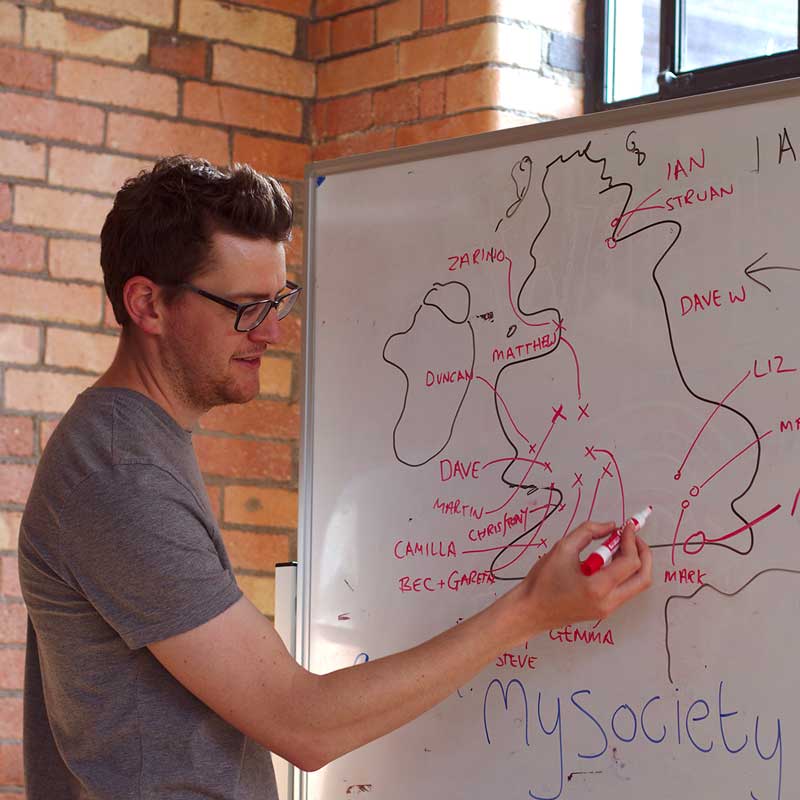 IAN
STRUAN
ZARINO
DAVE W
MATTHEW
DUNCAN
LIZ
DAVE
MARTIN
CHRIS/TONY
CAMILLA
BEC + GARETH
MARK
GEMMA
STEVE
MySociety